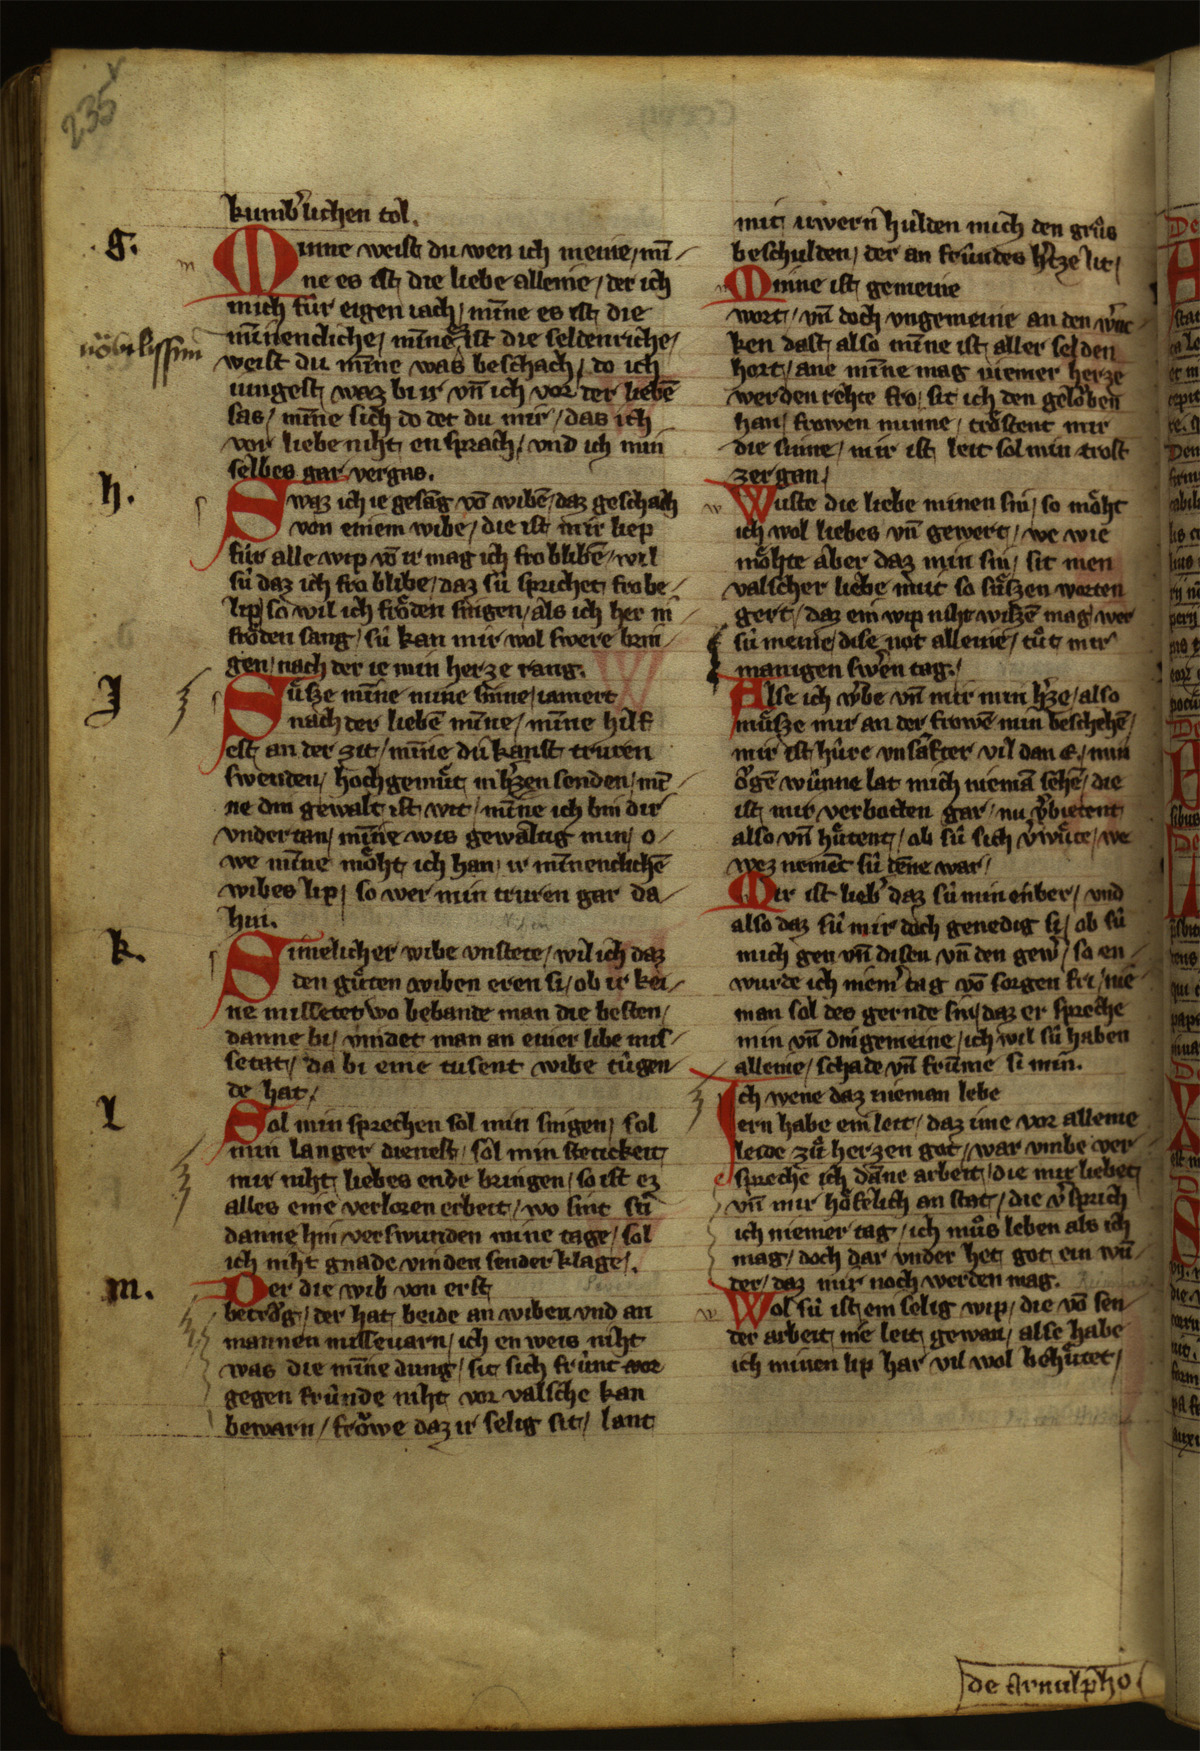 235 v
kumb'lichen tol.
g.
Minne weist du wen ich meine / mī
ne es ist die liebe alleine / der ich
mich fùr eigen iach / mīne es ist die
nobilissim
mīnencliche / mīne ist die seldenriche /
weist du mīne was beschach / do ich
iungest waz bi ir vn̄ ich vor der liebē
sas / mīne sich do det du mir / das ich
vor liebe niht en sprach / vnd ich min
selbes gar vergas.
h.
Swaz ich ie gesāg vō wibē / daz geschach
von einem wibe / die ist mir liep
fùr alle wip vō ir mag ich fro blibē / wil
sù daz ich fro blibe / daz sù sprichet fro be
lip / so wil ich froͤden singen / als ich her in
froͤden sang / sù kan mir wol swere brin
gen / nach der ie min herze rang.
J
Suͤsze mīne mine sinne / iamert
nach der liebē mīne / mīne hilf
est an der zit / mīne dù kanst truren
swenden / hochgemuͤt in h'zen senden / mī
ne din gewalt ist wit / mīne ich bin dir
vndertan / mīne wis gewaltig min / o
we mīne moͤht ich han / ir mīnenclichē
wibes lip / so wer min truren gar da
hin.
k.
Simelicher wibe vnstete / wil ich daz
den guͤten wiben eren si / ob ir kei
ne missetet wo bekande man die besten /
danne bi / vindet man an einer libe mis
setat / da bi eine tusent wibe tùgen
de hat /
l
Sol min sprechen sol min singen / sol
min langer dienest / sol min stetickeit
mir niht liebes ende bringen / so ist ez
alles eine verlozen erbeit / wo sint sù
danne hin verswunden mine tage / sol
ich niht gnade vinden sender klage /.
m.
Der die wib von erst
betrog / der hat beide an wiben vnd an
mannen misseuarn / ich en weis niht
was die mīne dung / sit sich frùnt vor
gegen frùnde niht vor valsche kan
bewarn / froͤwe daz ir selig sit / lant
mit uwern hulden mich den gruͦs
beschulden / der an frùndes h'tze lit /
Minne ist gemeine
wort / vn̄ doch vngemeine an den w'c
ken dast also mīne ist aller selden
hort / ane mīne mag niemer herze
werden rehte fro / sit ich den geloͮben
han / frowen minne / troͤstent mir
die sinne / mir ist leit sol min trost
zergan /
Wuste die liebe minen sin / so moͤht
ich wol liebes vn̄ gewert / we wie
moͤhte aber daz min sin / sit men
valscher liebe mit so suͤszen worten
gert / daz ein wip niht wiszē mag / wer
sù meine / dise not alleine / tuͦt mir
manigen swen tag. /
Alse ich w'be vn̄ mir min h'ze / also
muͤsze mir an der frowē min beschehē /
mir ist hùre vnsaͤfter vil dan e / min
oͮgē wùnne lat mich niemā sehē / die
ist mir verbotten gar / nu v'bietent
also vn̄ huͤtent / ob sù sich v'wuͤte / we
wez nement sù dēne war /
Mir ist lieb' daz sù min enber / vnd
also daz sù mir doch genedig si / ob sù
mich gen vn̄ disen vn̄ den gew' / so en
wurde ich niem' tag vō sorgen fri / nie
man sol des gernde sin / daz er spreche
min vn̄ din gemeine / ich wil sù haben
alleine / schade vn̄ frume si min.
Ich wene daz nieman lebe
ern habe ein leit / daz ime vor alleme
leide zuͦ herzen got / war vmbe ver
spreche ich dāne arbeit / die mir liebet
vn̄ mir hoͤfelich an stat / die v'sprich
ich niemer tag / ich muͦs leben als ich
mag / doch dar vnder het got ein wū
der / daz mir noch werden mag.
Wol sù ist ein selig wip / die vō sen
der arbeit nie leit gewan / alse habe
ich minen lip har vil wol behuͤtet /
de Arnulpho